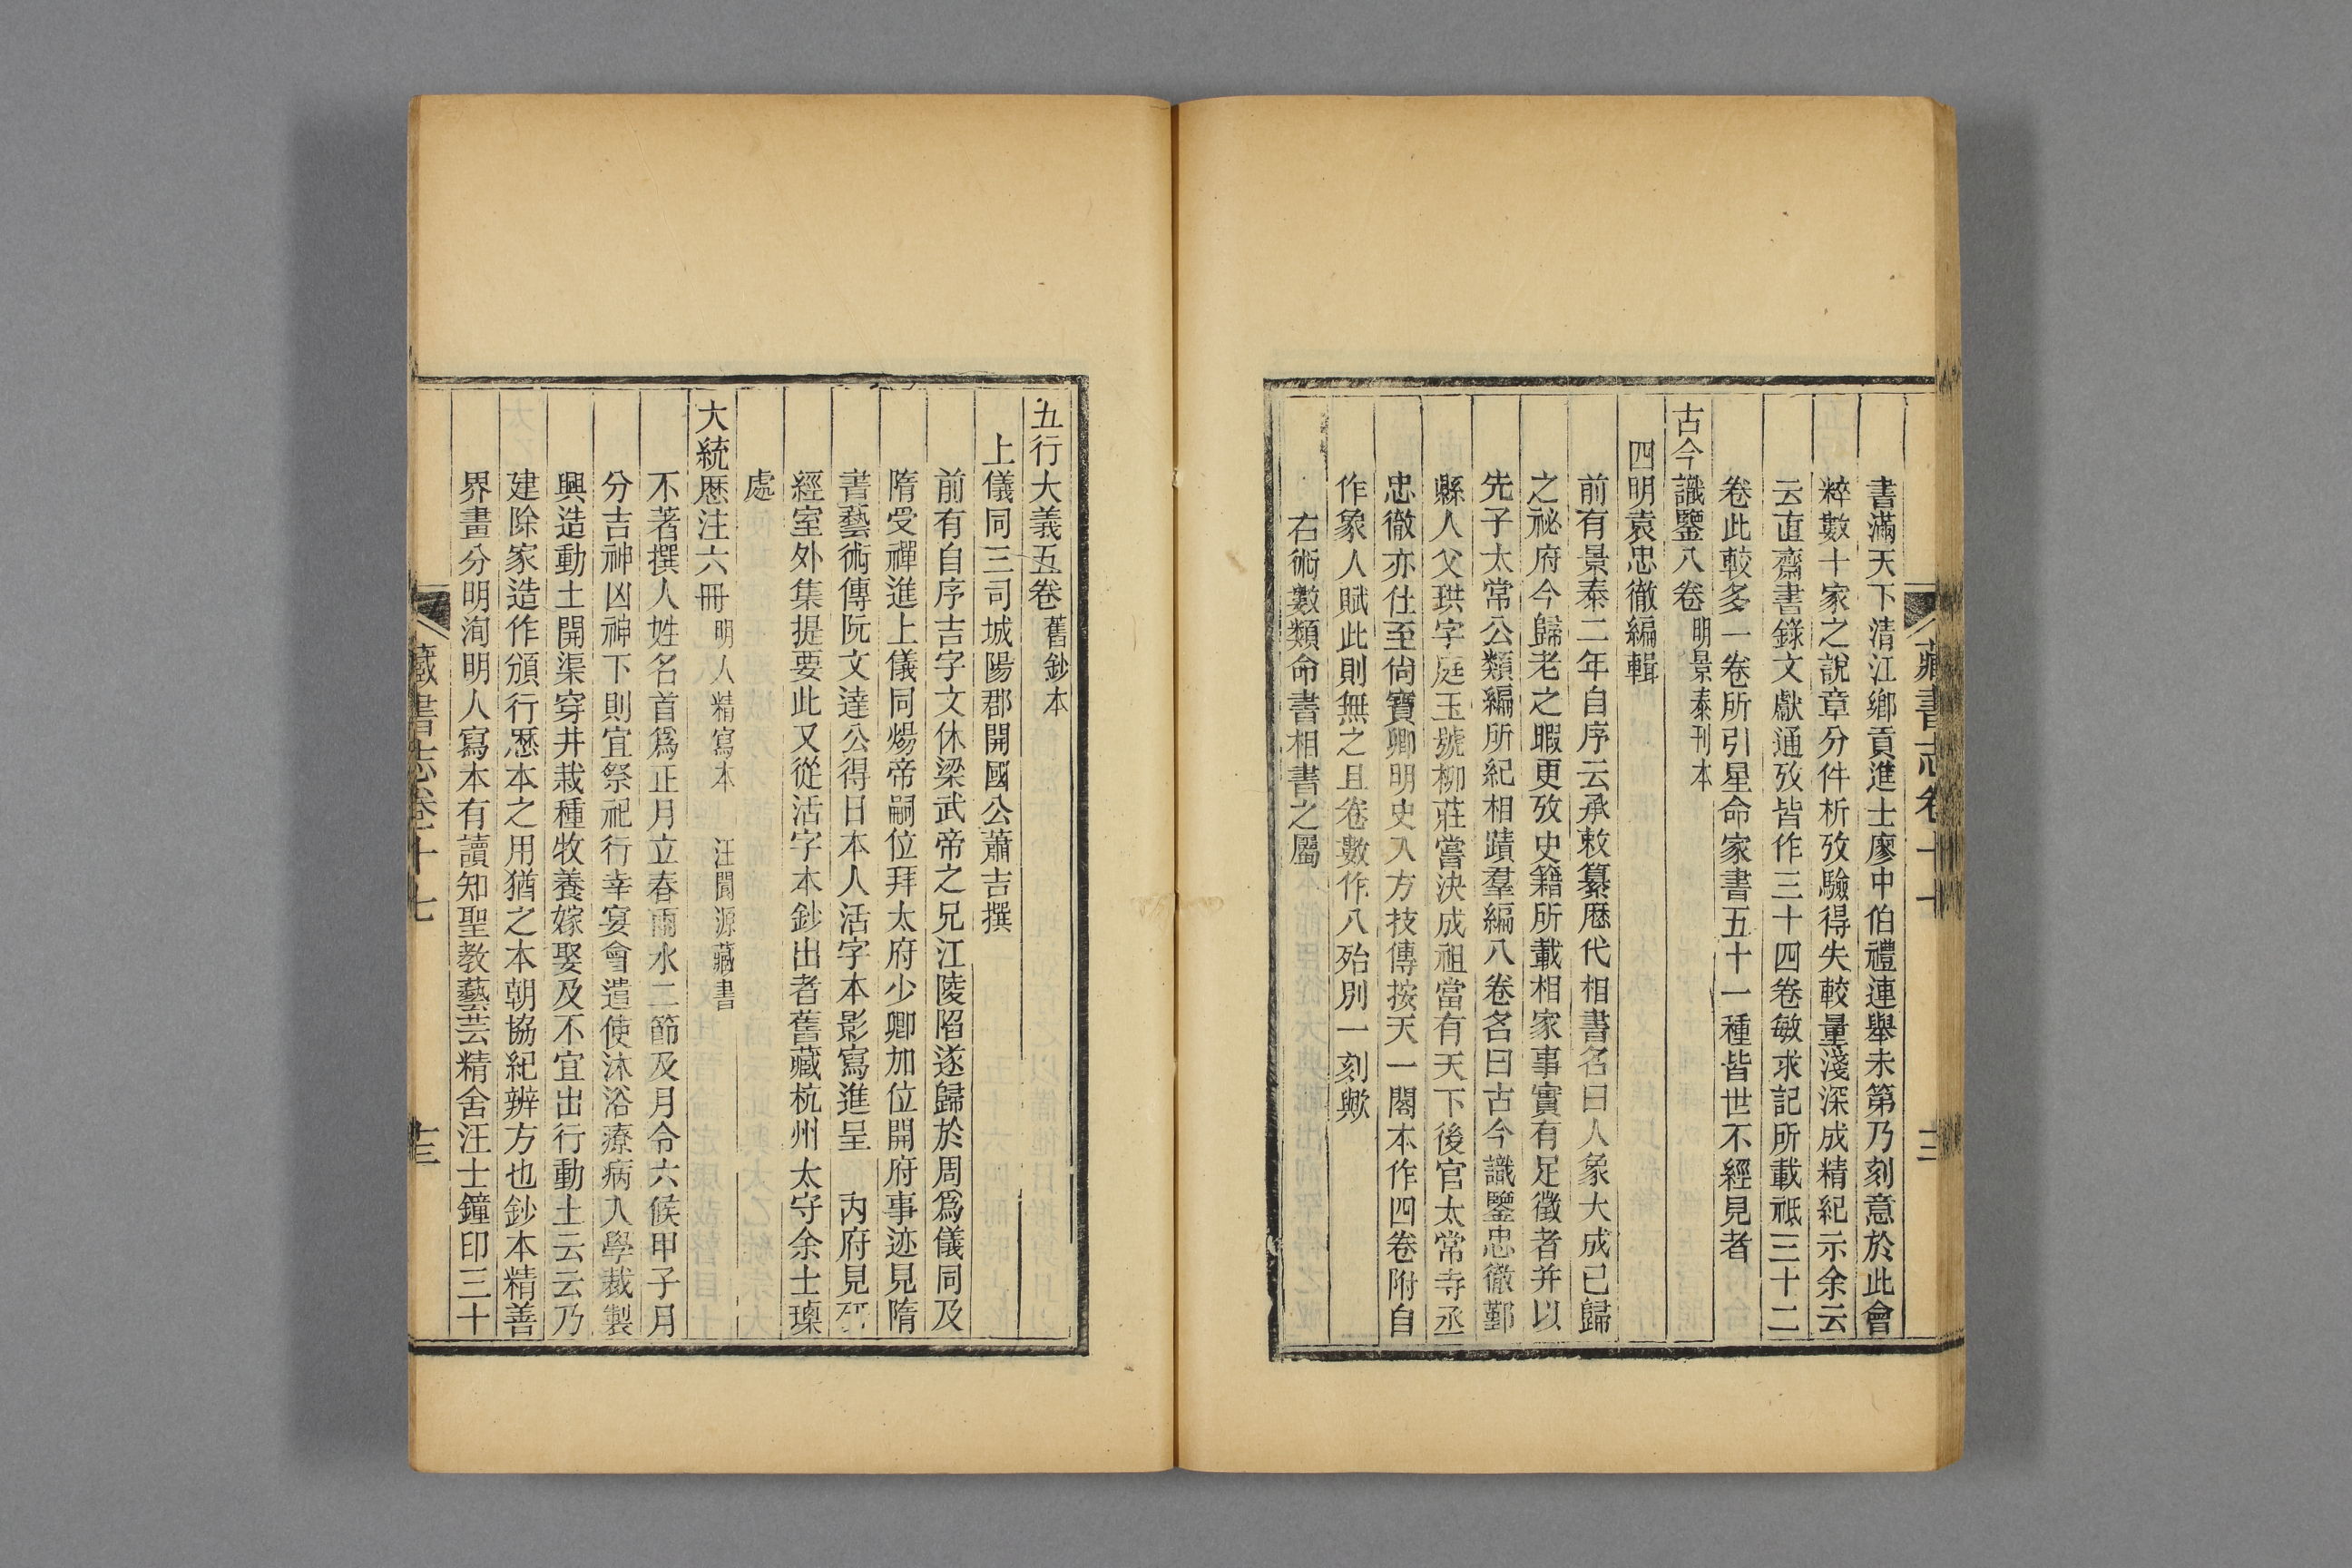 書滿天下清江鄉貢進士廖中伯禮連舉未第乃刻意於此會
粹數十家之說章分件析攷驗得失較量淺深成精紀示余云
云直齋書錄文獻通攷皆作三十四卷敏求記所載祗三十二
卷此較多一卷所引星命家書五十一種皆世不經見者
古今識鑒八卷 明景泰刊本
四明袁忠徹編輯
前有景泰二年自序云承敕纂歷代相書名曰人象大成已歸
之祕府今歸老之暇更攷史籍所載相家事實有足徵者并以
先子太常公類編所紀相蹟羣編八卷名曰古今識鑒忠徹鄞
縣人父珙字庭玉號柳莊嘗決成祖當有天下後官太常寺丞
忠徹亦仕至尙寶卿明史入方技傳按天一閣本作四卷附自
作象人賦此則無之且卷數作八殆別一刻歟
右術數類命書相書之屬
五行大義五卷 舊鈔本
上儀同三司城陽郡開國公蕭吉撰
前有自序吉字文休梁武帝之兄江陵陷遂歸於周爲儀同及
隋受禪進上儀同煬帝嗣位拜太府少卿加位開府事迹見隋
書藝術傳阮文達公得日本人活字本影寫進呈 內府見揅
經室外集提要此又從活字本鈔出者舊藏杭州太守余士璪
處
大統歷注六冊 明人精寫本 汪閬源藏書
不著撰人姓名首爲正月立春雨水二節及月令六候甲子月
分吉神凶神下則宜祭祀行幸宴會遣使沐浴療病入學裁製
興造動土開渠穿井栽種牧養嫁娶及不宜出行動土云云乃
建除家造作頒行歷本之用猶之本朝協紀辨方也鈔本精善
界畫分明洵明人寫本有讀知聖教藝芸精舍汪士鐘印三十
藏書志卷十七
十三